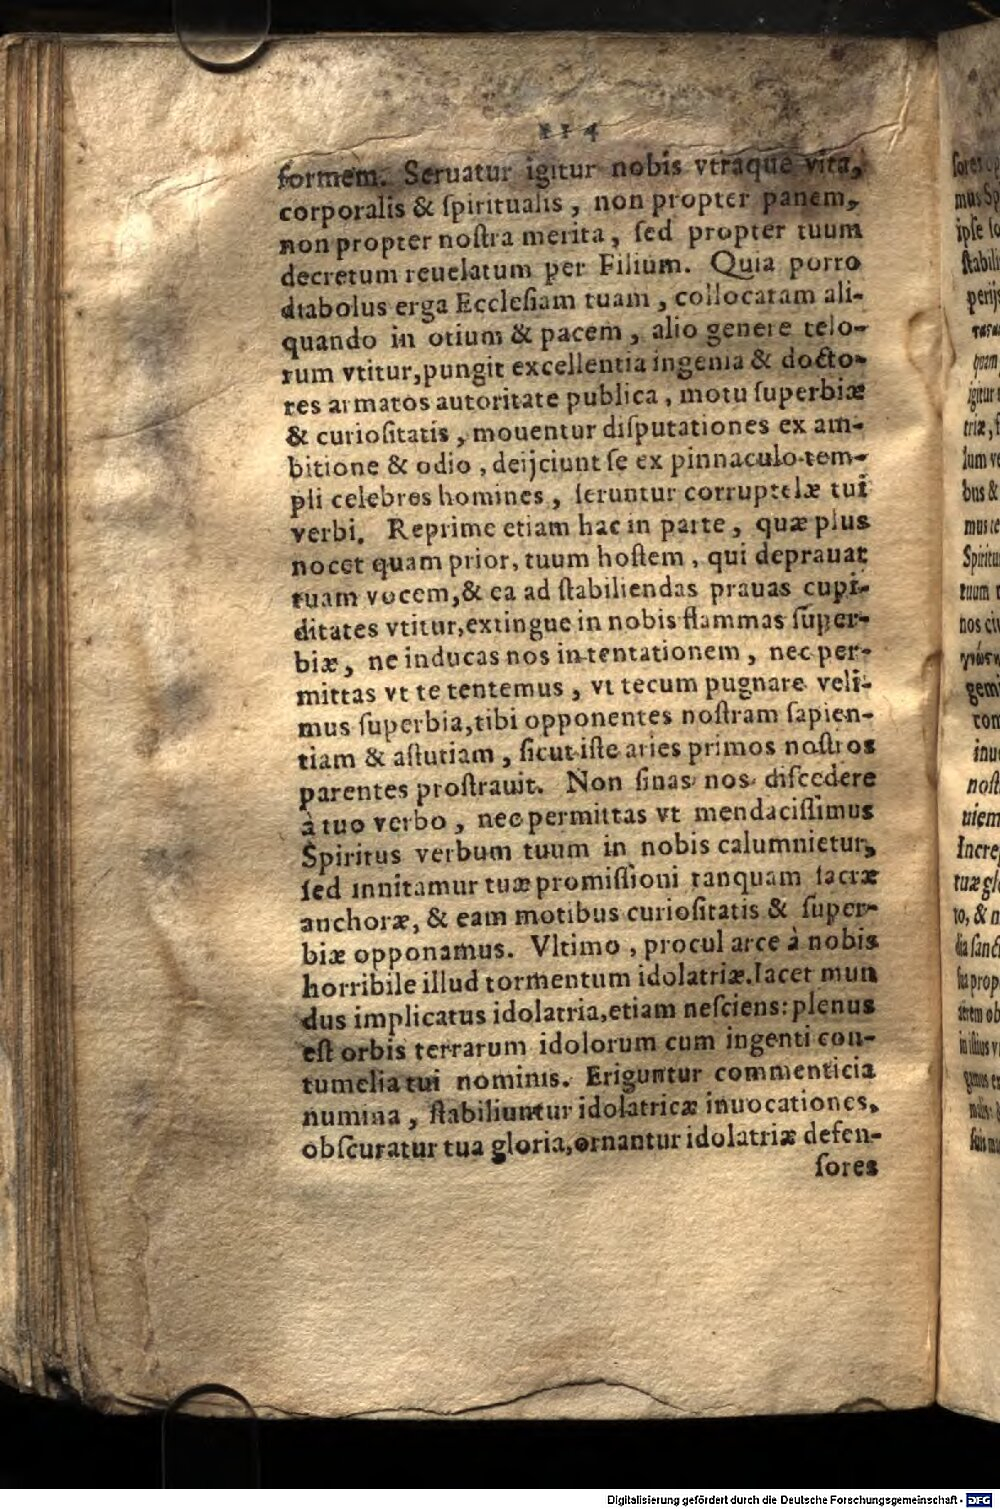 114
formem. Seruatur igitur nobis vtraque vita,
corporalis & ſpiritualis, non propter panem,
non propter noſtra merita, ſed propter tuum
decretum reuelatum per Filium. Quia porro
diabolus erga Eccleſiam tuam, collocatam ali-
quando in otium & pacem, alio genere telo-
rum vtitur, pungit excellentia ingenia & docto-
res armatos autoritate publica, motu ſuperbiæ
& curioſitatis, mouentur diſputationes ex am-
bitione & odio, deijciunt ſe ex pinnaculo tem-
pli celebres homines, ſeruntur corruptelæ tui
verbi. Reprime etiam hac in parte, quæ plus
nocet quam prior, tuum hoſtem, qui deprauat
tuam vocem, & ea ad ſtabiliendas prauas cupi-
ditates vtitur, extingue in nobis flammas ſuper-
biæ, ne inducas nos in tentationem, nec per-
mittas vt te tentemus, vt tecum pugnare veli-
mus ſuperbia, tibi opponentes noſtram ſapien-
tiam & aſtutiam, ſicut iſte aries primos noſtros
parentes proſtrauit. Non ſinas nos diſcedere
à tuo verbo, nec permittas vt mendaciſſimus
Spiritus verbum tuum in nobis calumnietur,
ſed innitamur tuæ promiſſioni tanquam ſacræ
anchoræ, & eam motibus curioſitatis & ſuper-
biæ opponamus. Vltimo, procul arce à nobis
horribile illud tormentum idolatriæ. Iacet mun
dus implicatus idolatria, etiam neſciens: plenus
eſt orbis terrarum idolorum cum ingenti con-
tumelia tui nominis. Eriguntur commenticia
numina, ſtabiliuntur idolatricæ inuocationes,
obſcuratur tua gloria, ornantur idolatriæ defen-
ſores
Digitalisierung gefördert durch die Deutsche Forschungsgemeinschaft - DFG